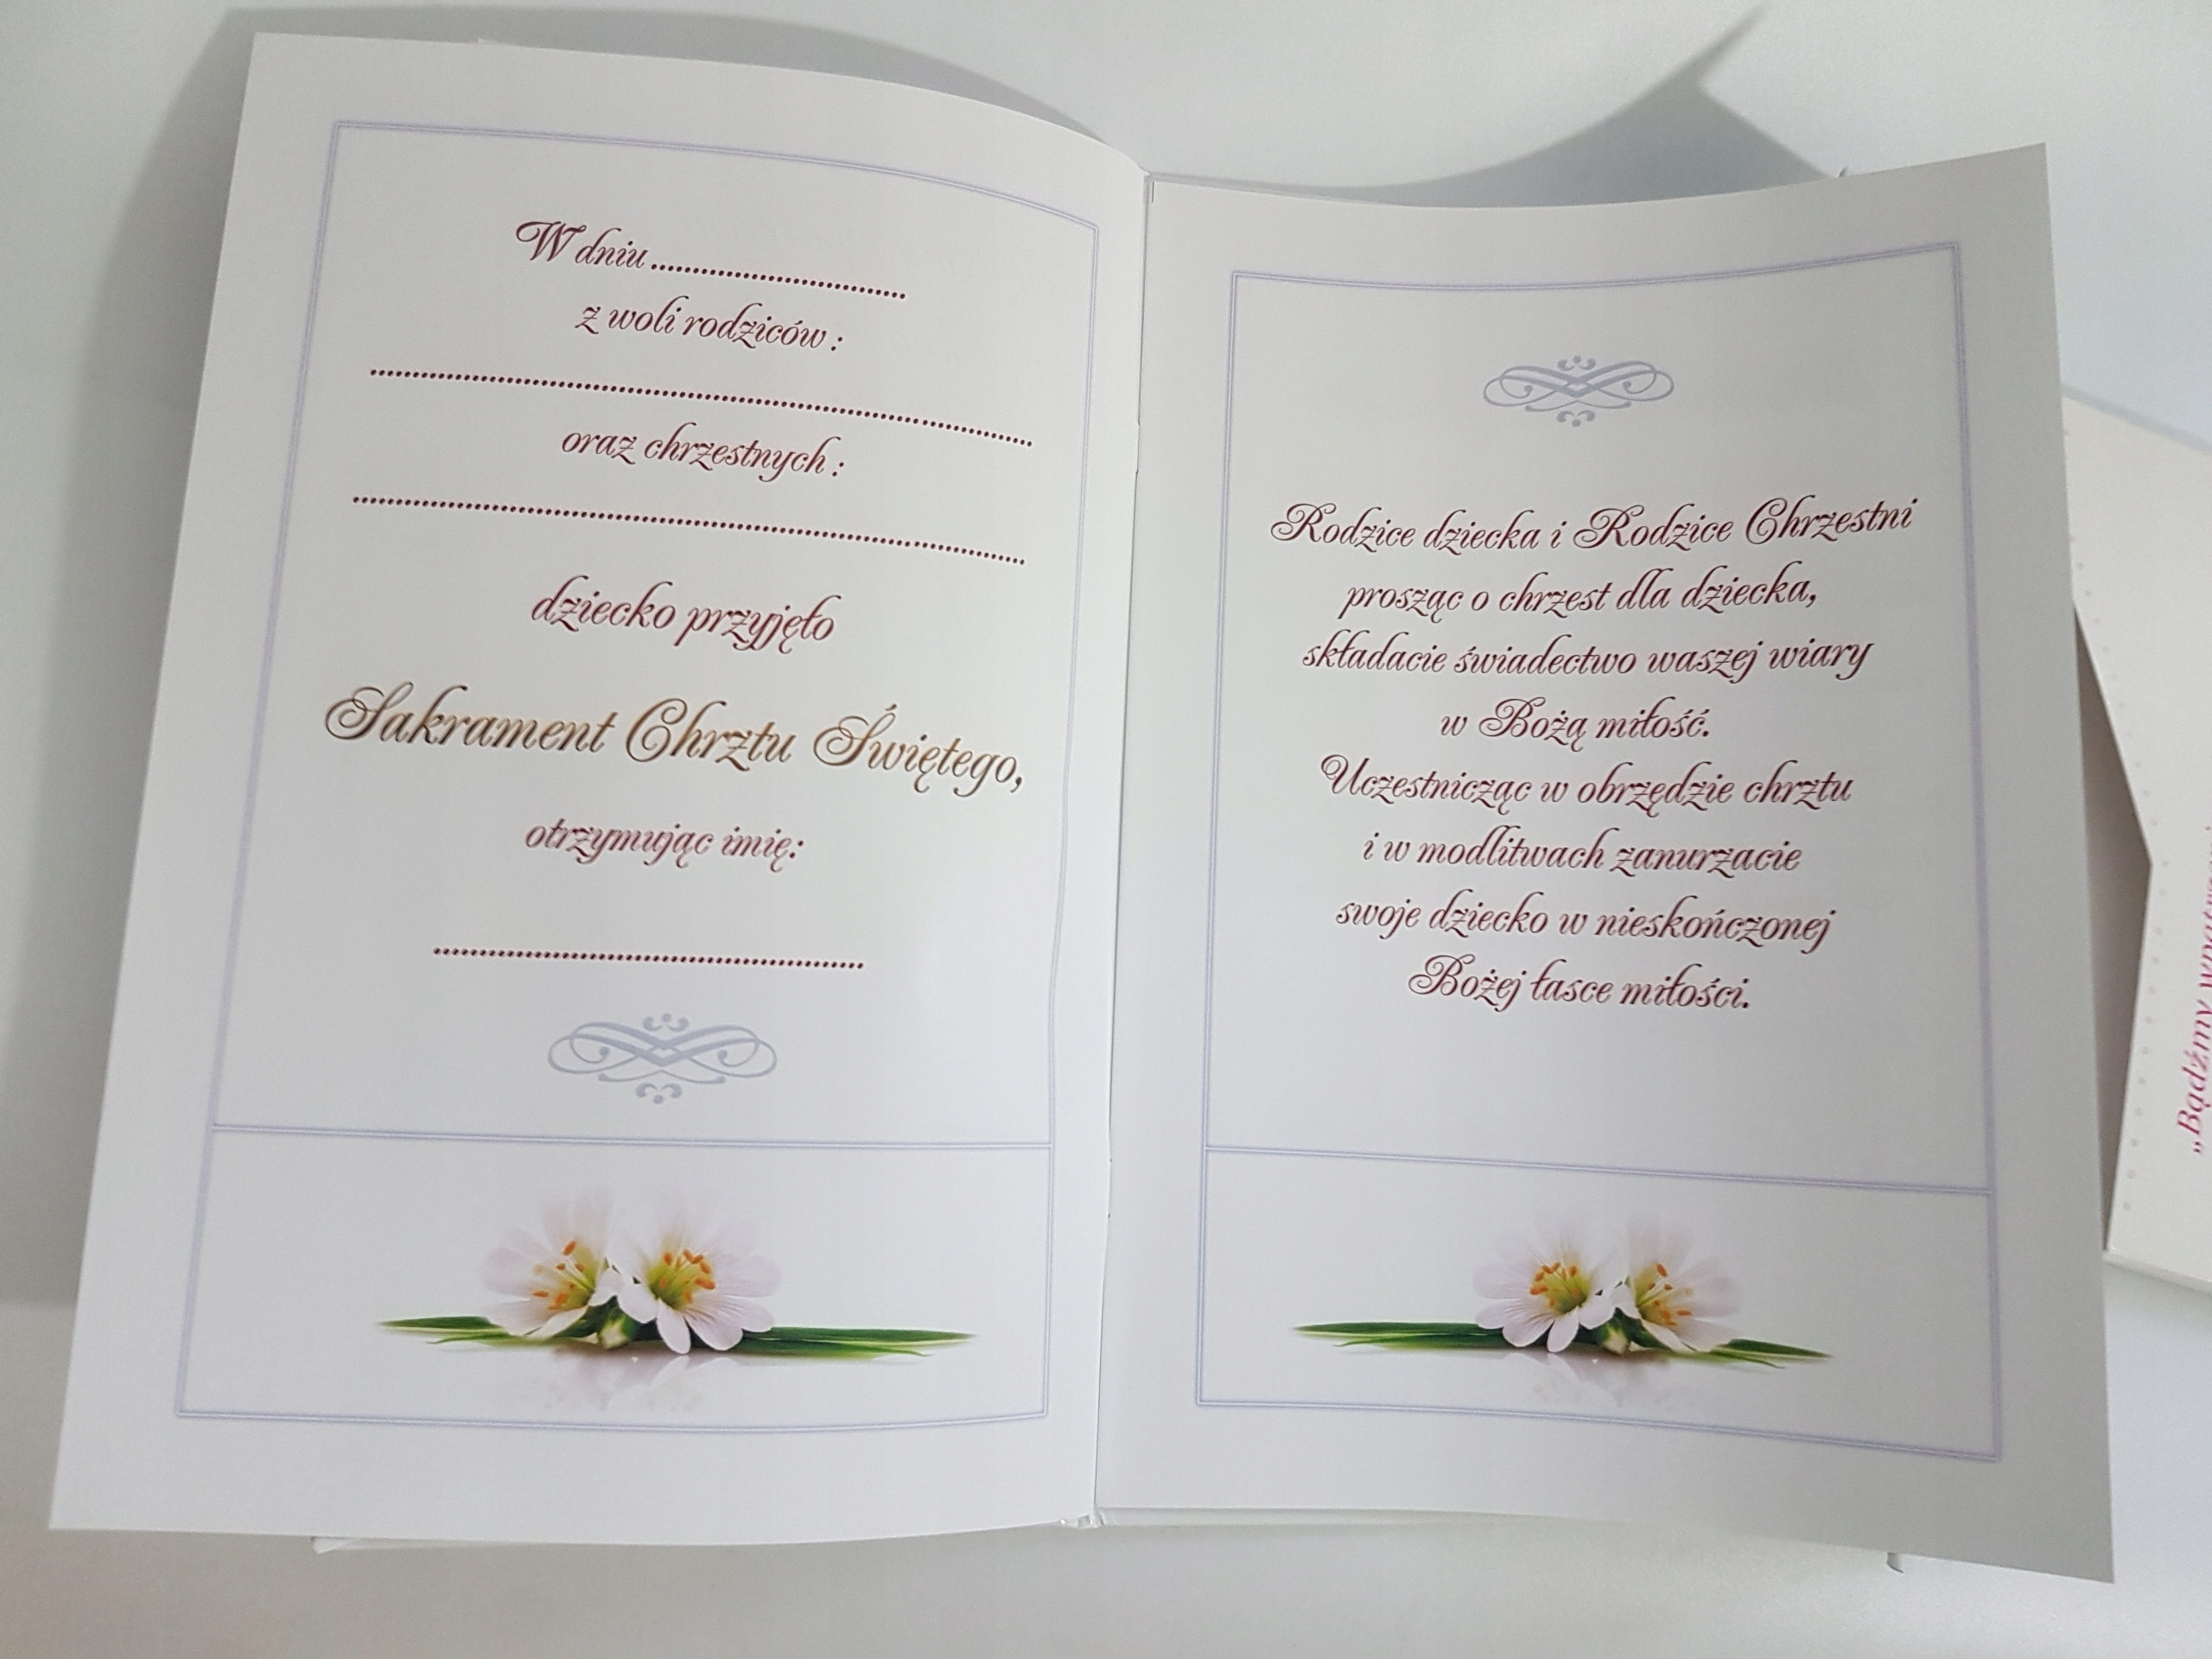 W dniu..............................
z woli rodziców :
................................................................................
oraz chrzestnych :
................................................................................
dziecko przyjęło
Sakrament Chrztu Świętego,
otrzymując imię:
..................................................
Rodzice dziecka i Rodzice Chrzestni
prosząc o chrzest dla dziecka,
składacie świadectwo waszej wiary
w Bożą miłość.
Uczestnicząc w obrzędzie chrztu
i w modlitwach zanurzacie
swoje dziecko w nieskończonej
Bożej łasce miłości.
„Bądźmy